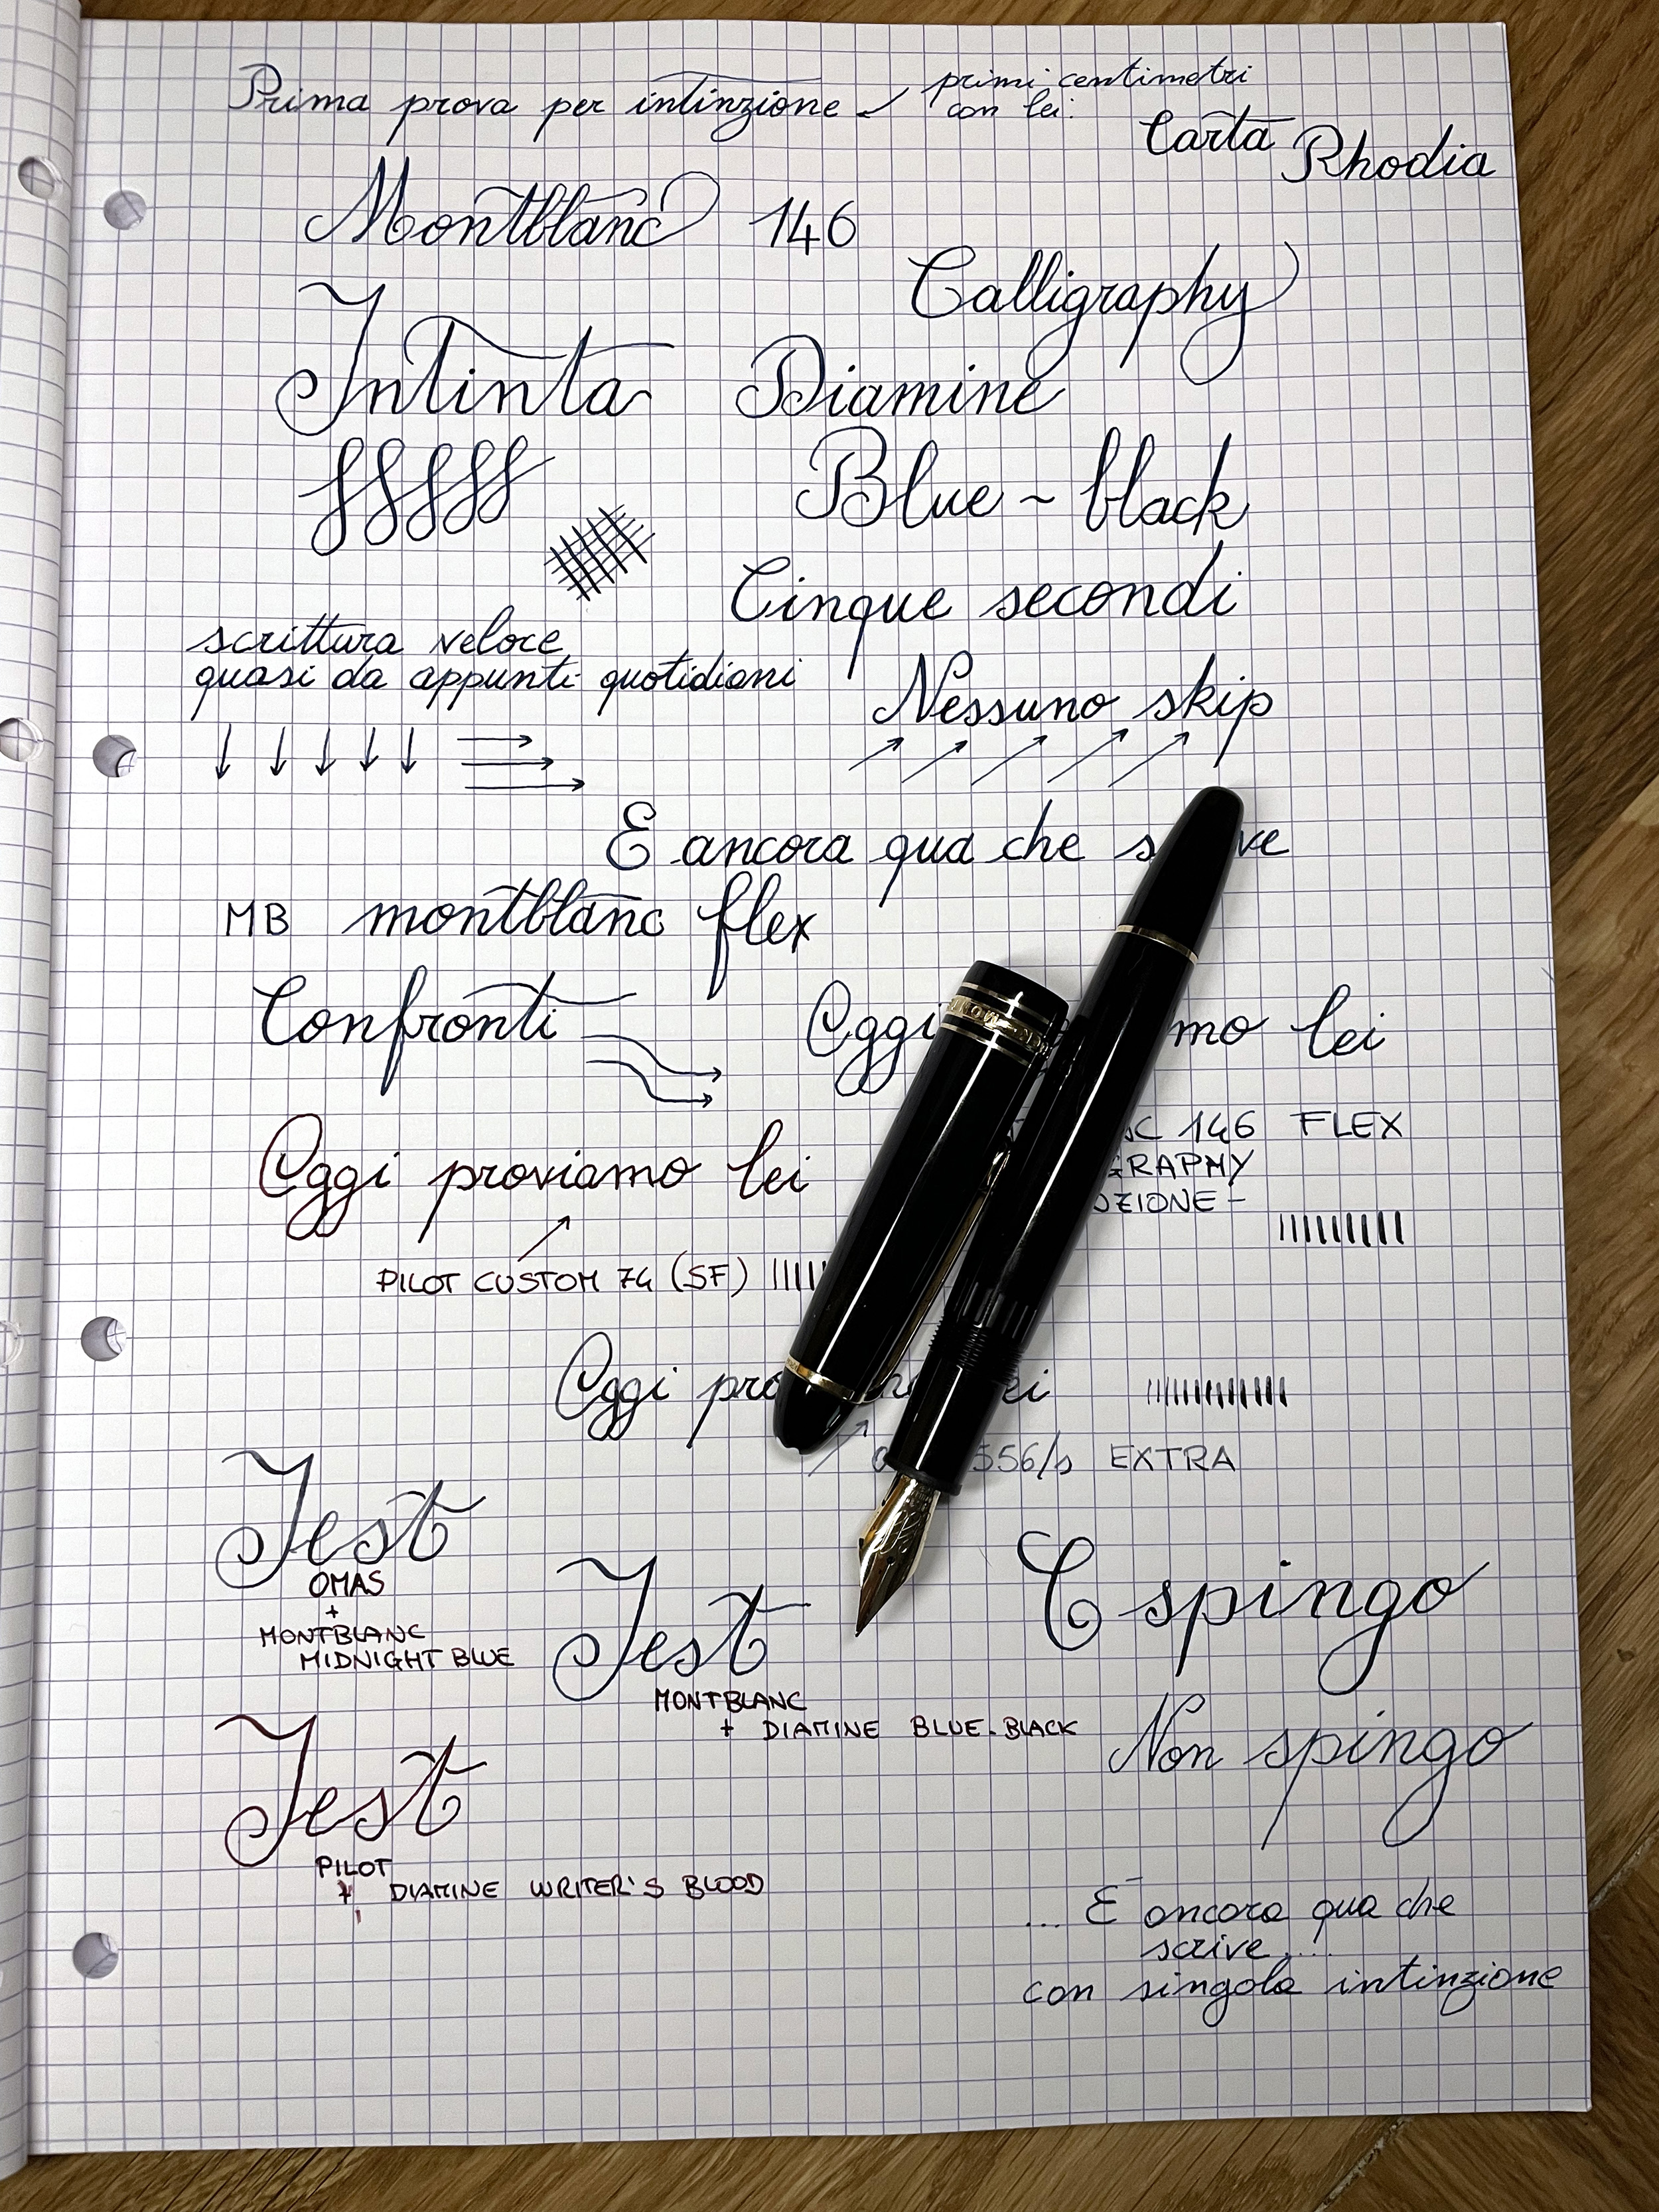 Prima prova per intinzione
primi centimetri
con lei.
Carta Rhodia
Montblanc 146
Calligraphy
Intinta Diamine
Blue - black
Cinque secondi
scrittura veloce
quasi da appunti quotidiani
Nessuno skip
E ancora qua che
MB montblanc flex
Confronti
Oggi mo lei
146 FLEX
Oggi proviamo lei
PILOT CUSTOM 74 (SF)
Oggi
556/s EXTRA
Test
OMAS
+
MONTBLANC
MIDNIGHT BLUE
Test
MONTBLANC
+ DIAMINE BLUE-BLACK
E spingo
Non spingo
Test
PILOT
+ DIAMINE WRITER'S BLOOD
... E ancora qua che
scrive....
con singola intinzione